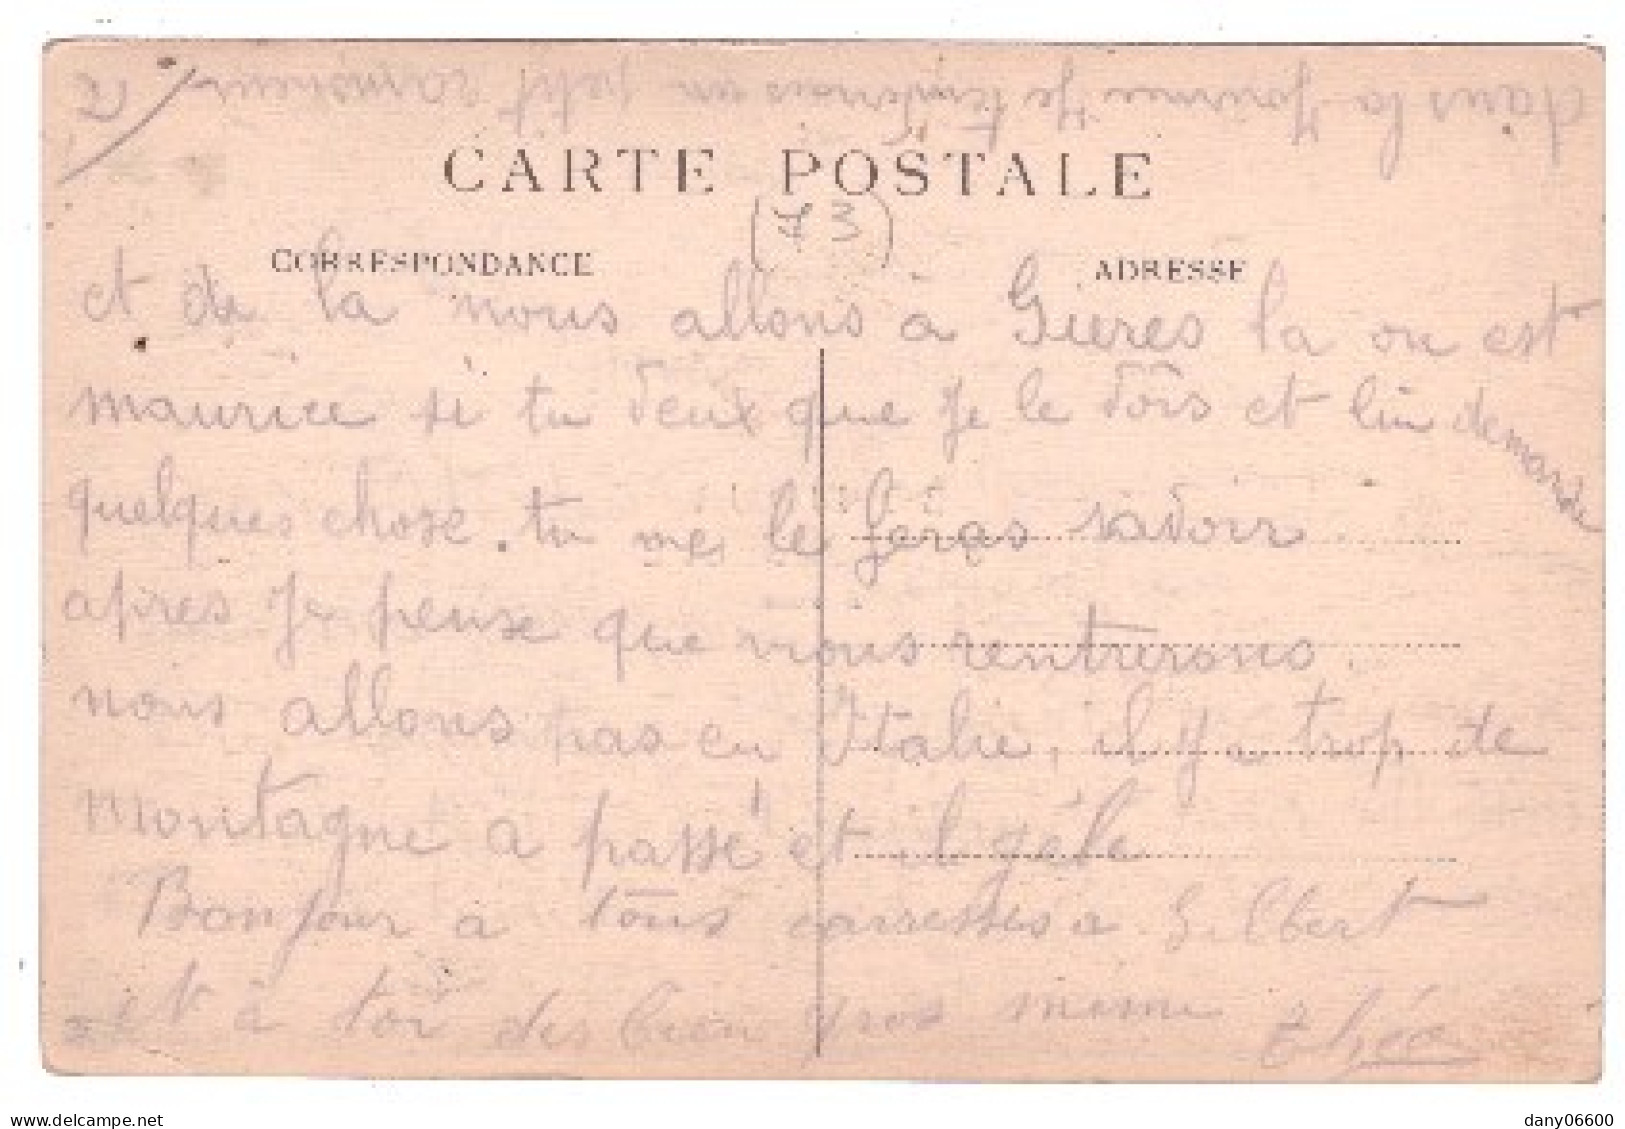 2
dans la Journée Je tendrais un petit
CARTE POSTALE
(73)
CORRESPONDANCE
ADRESSE
et de la nous allons à Gieres la ou est
maurice si tu veux que Je le vois et lui demande
quelques chose. tu me le feras savoir
apres Je pense que nous rentrerons.
nous allons pas en Italie, il y a trop de
montagne a passé et il gèle
Bonjour à tous carresses a Gilbert
et à toi des bien gros mimi
dany06600